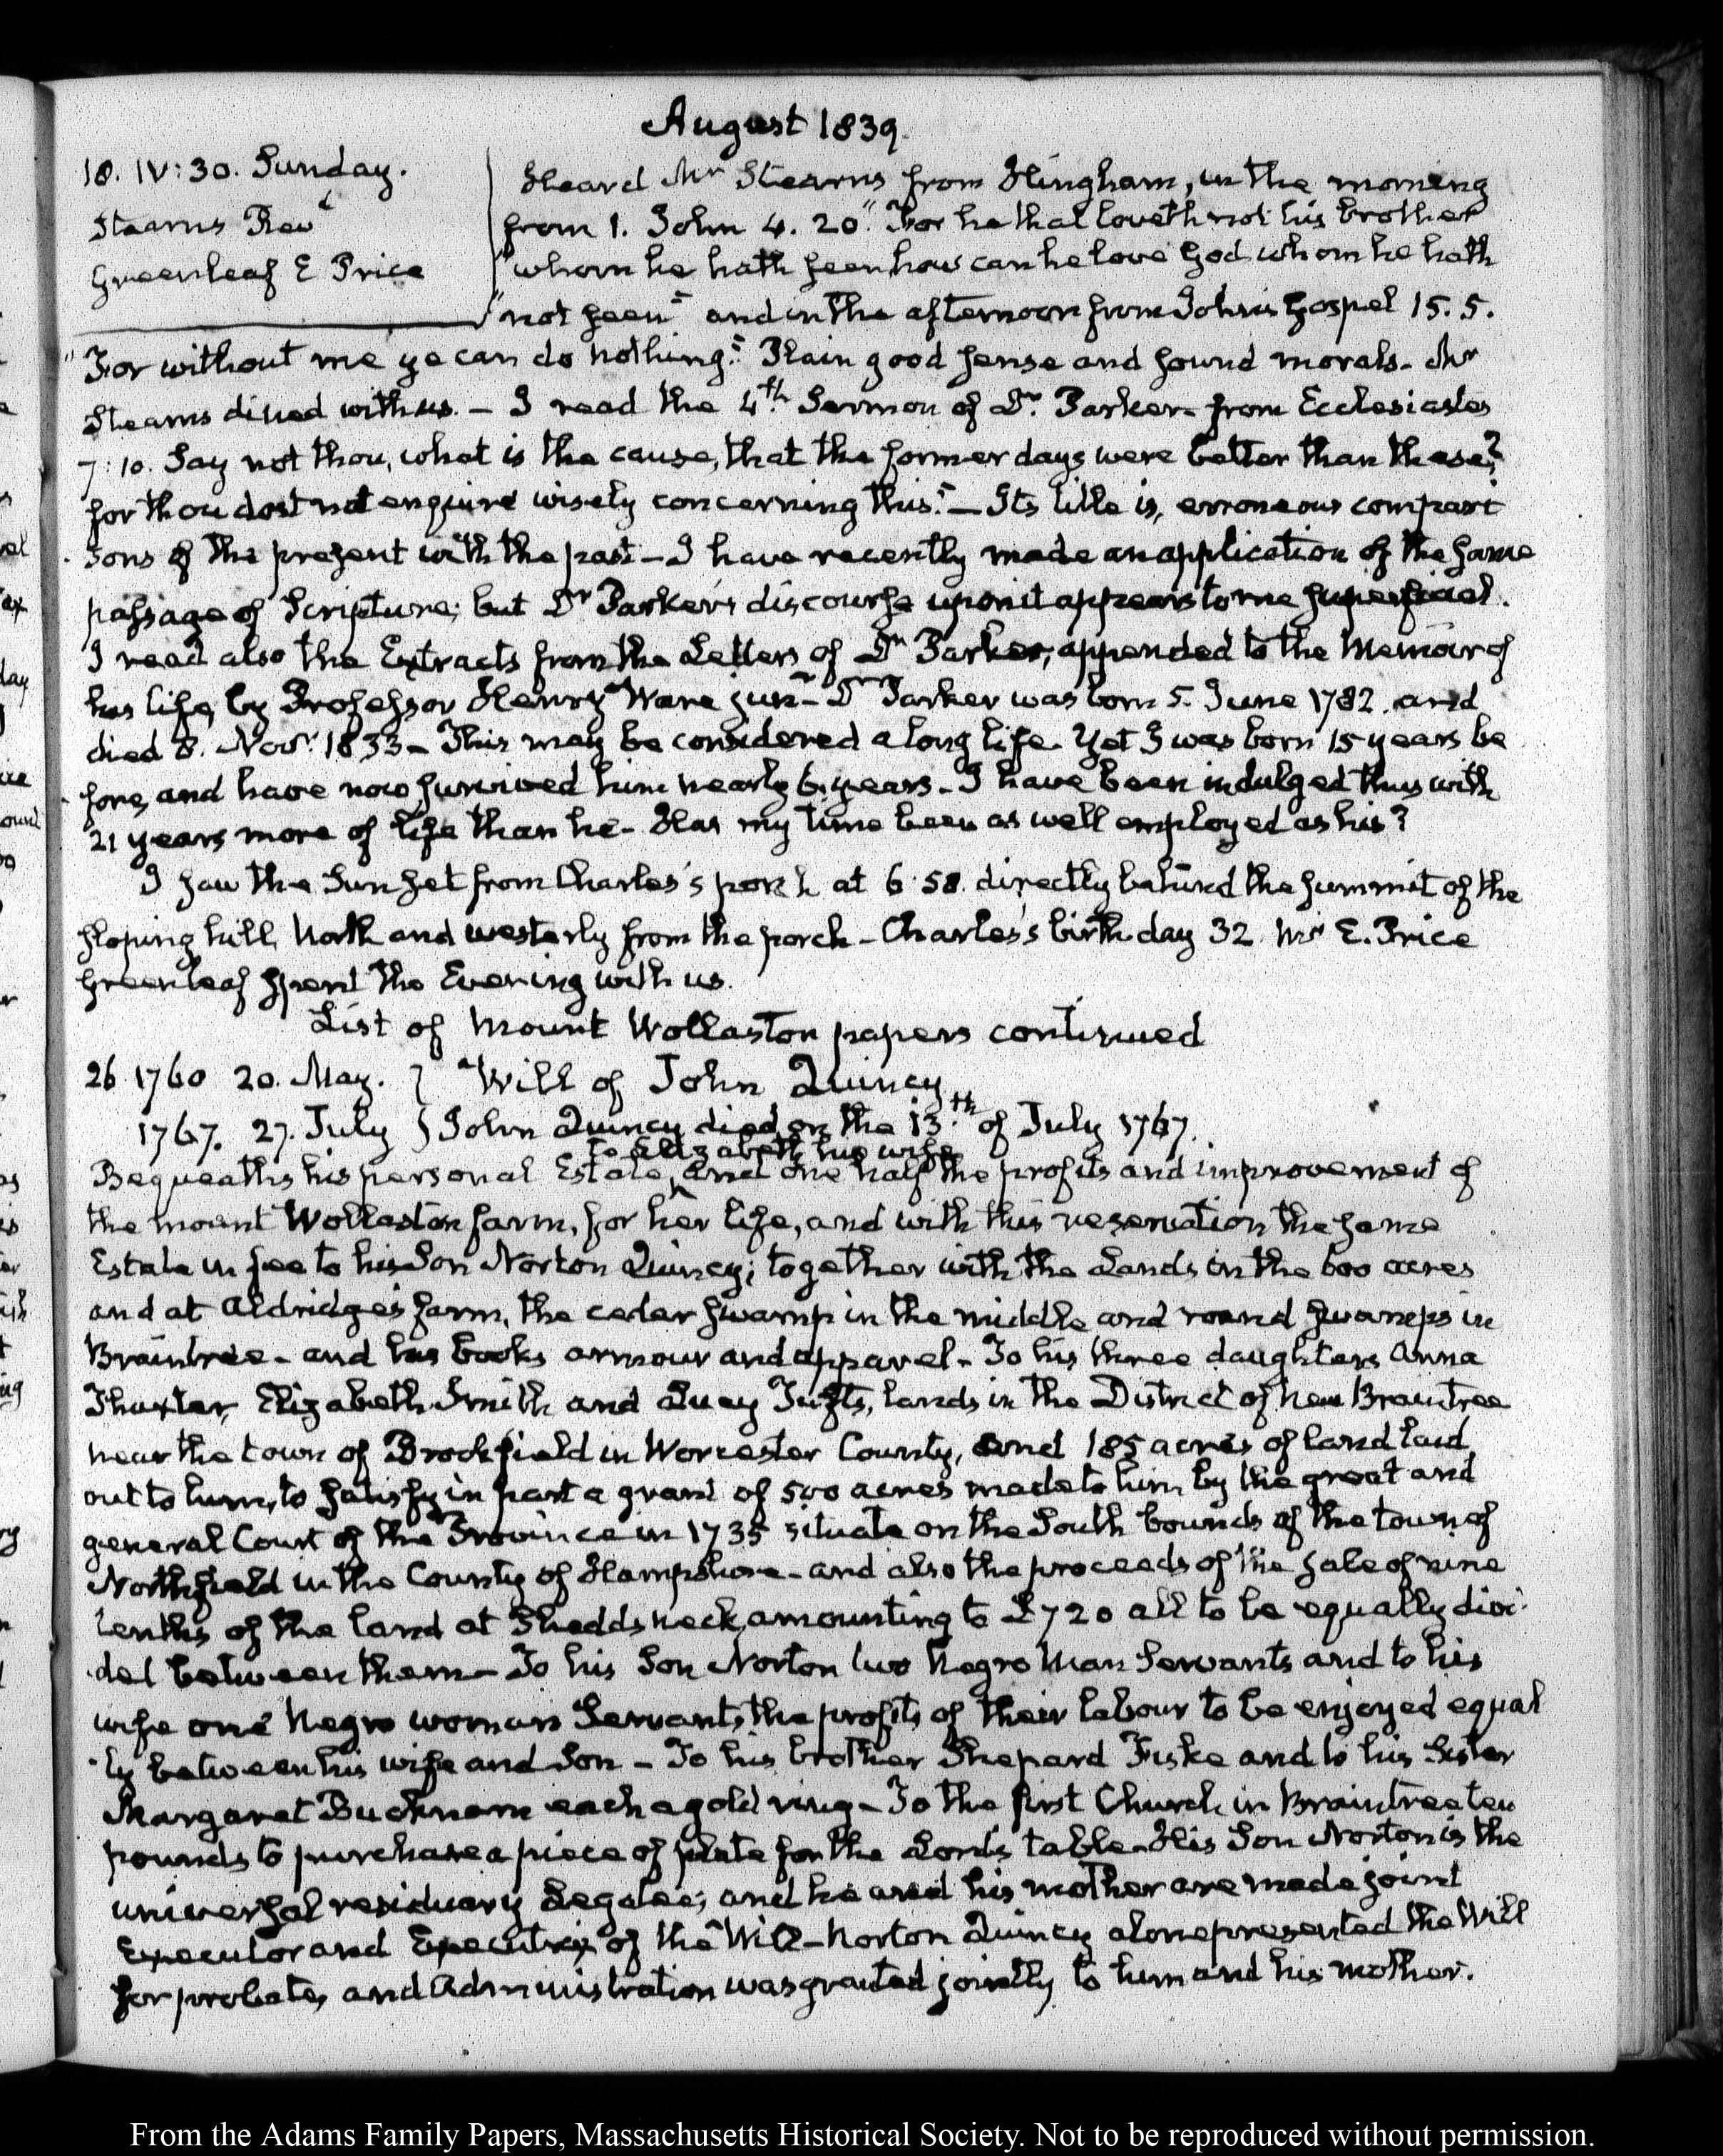 August 1839.
18. IV:30. Sunday.
Stearns Revd
Greenleaf E Price
Heard Mr Stearns from Hingham, in the morning
from 1. John 4. 20. "For he that loveth not his brother
"whom he hath seen how can he love God whom he hath
"not seen" and in the afternoon from John's Gospel 15. 5.
"For without me ye can do nothing." Plain good sense and sound morals. Mr
Stearns dined with us. — I read the 4th Sermon of Dr. Parker from Ecclesiastes
7:10. Say not thou, what is the cause, that the former days were better than these?
for thou dost not enquire wisely concerning this." — Its title is, erroneous compari
sons of the present with the past — I have recently made an application of the same
passage of Scripture; but Dr Parker's discourse upon it appears to me superficial.
I read also the Extracts from the Letters of Dr Parker, appended to the Memoir of
his life, by Professor Henry Ware junr — Dr Parker was born 5. June 1782. and
died 8. Novr 1833 — This may be considered a long life. Yet I was born 15 years be
fore, and have now survived him nearly 6. years. — I have been indulged thus with
21 years more of life than he — Has my time been as well employed as his?
I saw the Sun set from Charles's porch at 6:58. directly behind the summit of the
sloping hill, North and westerly from the porch — Charles's birth day 32. Mr E. Price
Greenleaf spent the Evening with us.
List of Mount Wollaston papers continued
26 1760 20. May. } Will of John Quincy
1767. 27. July } John Quincy died on the 13.th of July 1767.
to Elizabeth his wife
Bequeaths his personal Estate, and one half the profits and improvement of
the mount Wollaston farm, for her life, and with this reservation the same
Estate in fee to his Son Norton Quincy; together with the Lands in the 600 acres
and at Aldridge's farm, the cedar swamp in the middle and round swamps in
Braintree — and his books armour and apparel — To his three daughters Anna
Thaxter, Elizabeth Smith and Lucy Tufts, lands in the District of New Braintree
near the town of Brookfield in Worcester County, and 185 acres of land laid
out to him, to satisfy in part a grant of 500 acres made to him by the great and
general Court of the Province in 1735 situate on the South bounds of the town of
Northfield in the County of Hampshire — and also the proceeds of the sale of nine
tenths of the land at Shedds neck, amounting to £720 all to be equally divi
ded between them — To his Son Norton two Negro Man Servants and to his
wife one Negro woman Servant, the profits of their labour to be enjoyed equal
ly between his wife and Son — To his brother Shepard Fiske and to his Sister
Margaret Bucknam each a gold ring — To the first Church in Braintree ten
pounds to purchase a piece of plate for the Lord's table — His Son Norton is the
universal residuary Legatee; and he and his mother are made joint
Executor and Executrix of the Will — Norton Quincy alone presented the Will
for probate, and Administration was granted jointly to him and his mother.
From the Adams Family Papers, Massachusetts Historical Society. Not to be reproduced without permission.